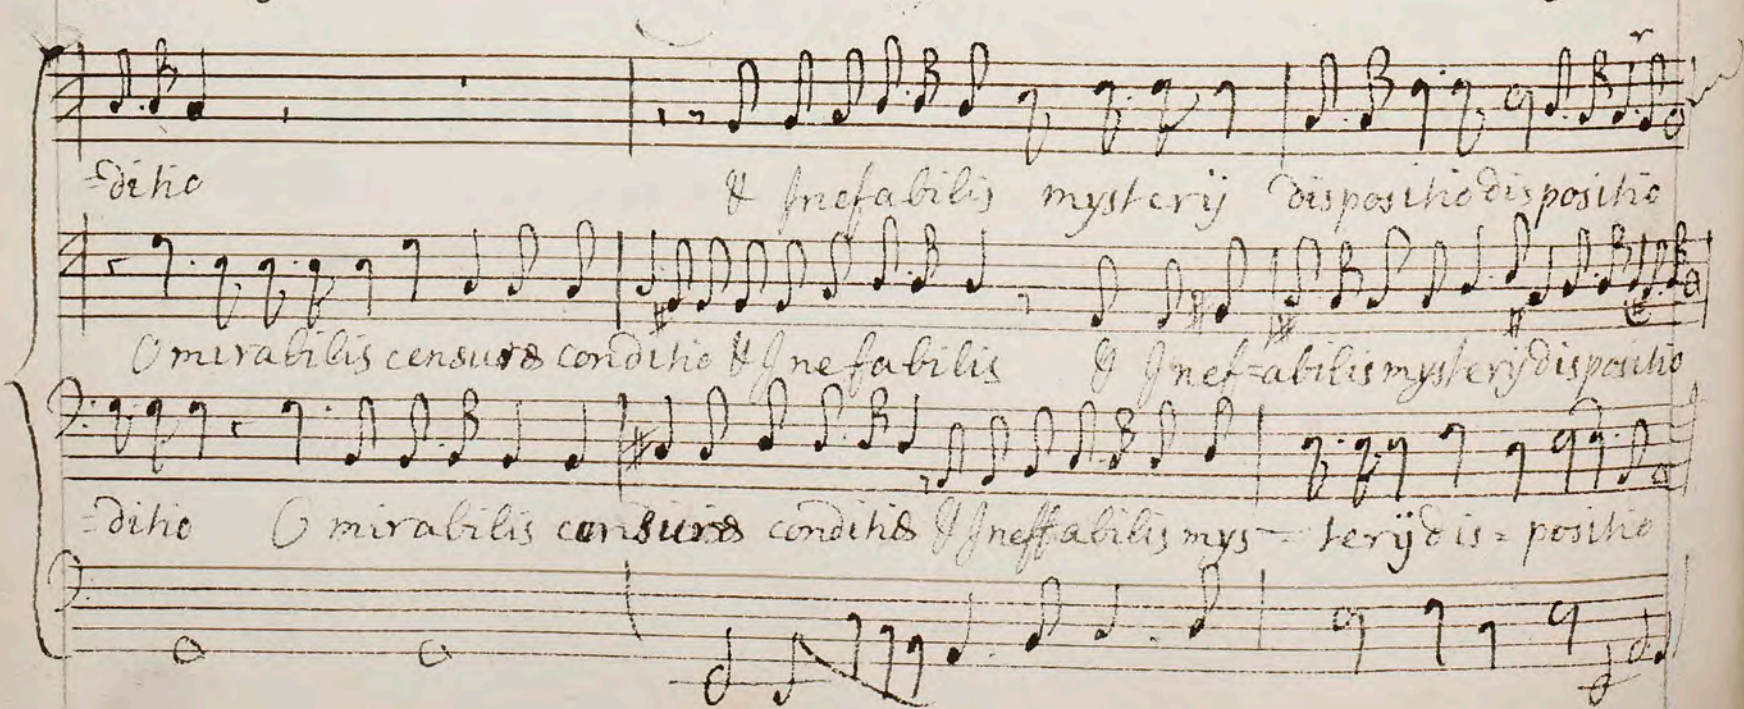 =ditio & Inefabilis mysterij dispositio dispositio
O mirabilis censura conditio & Inefabilis & Inef=abilis mysterij dispositio
=ditio O mirabilis conditio & Ineffabilis mys= terij dis= positio